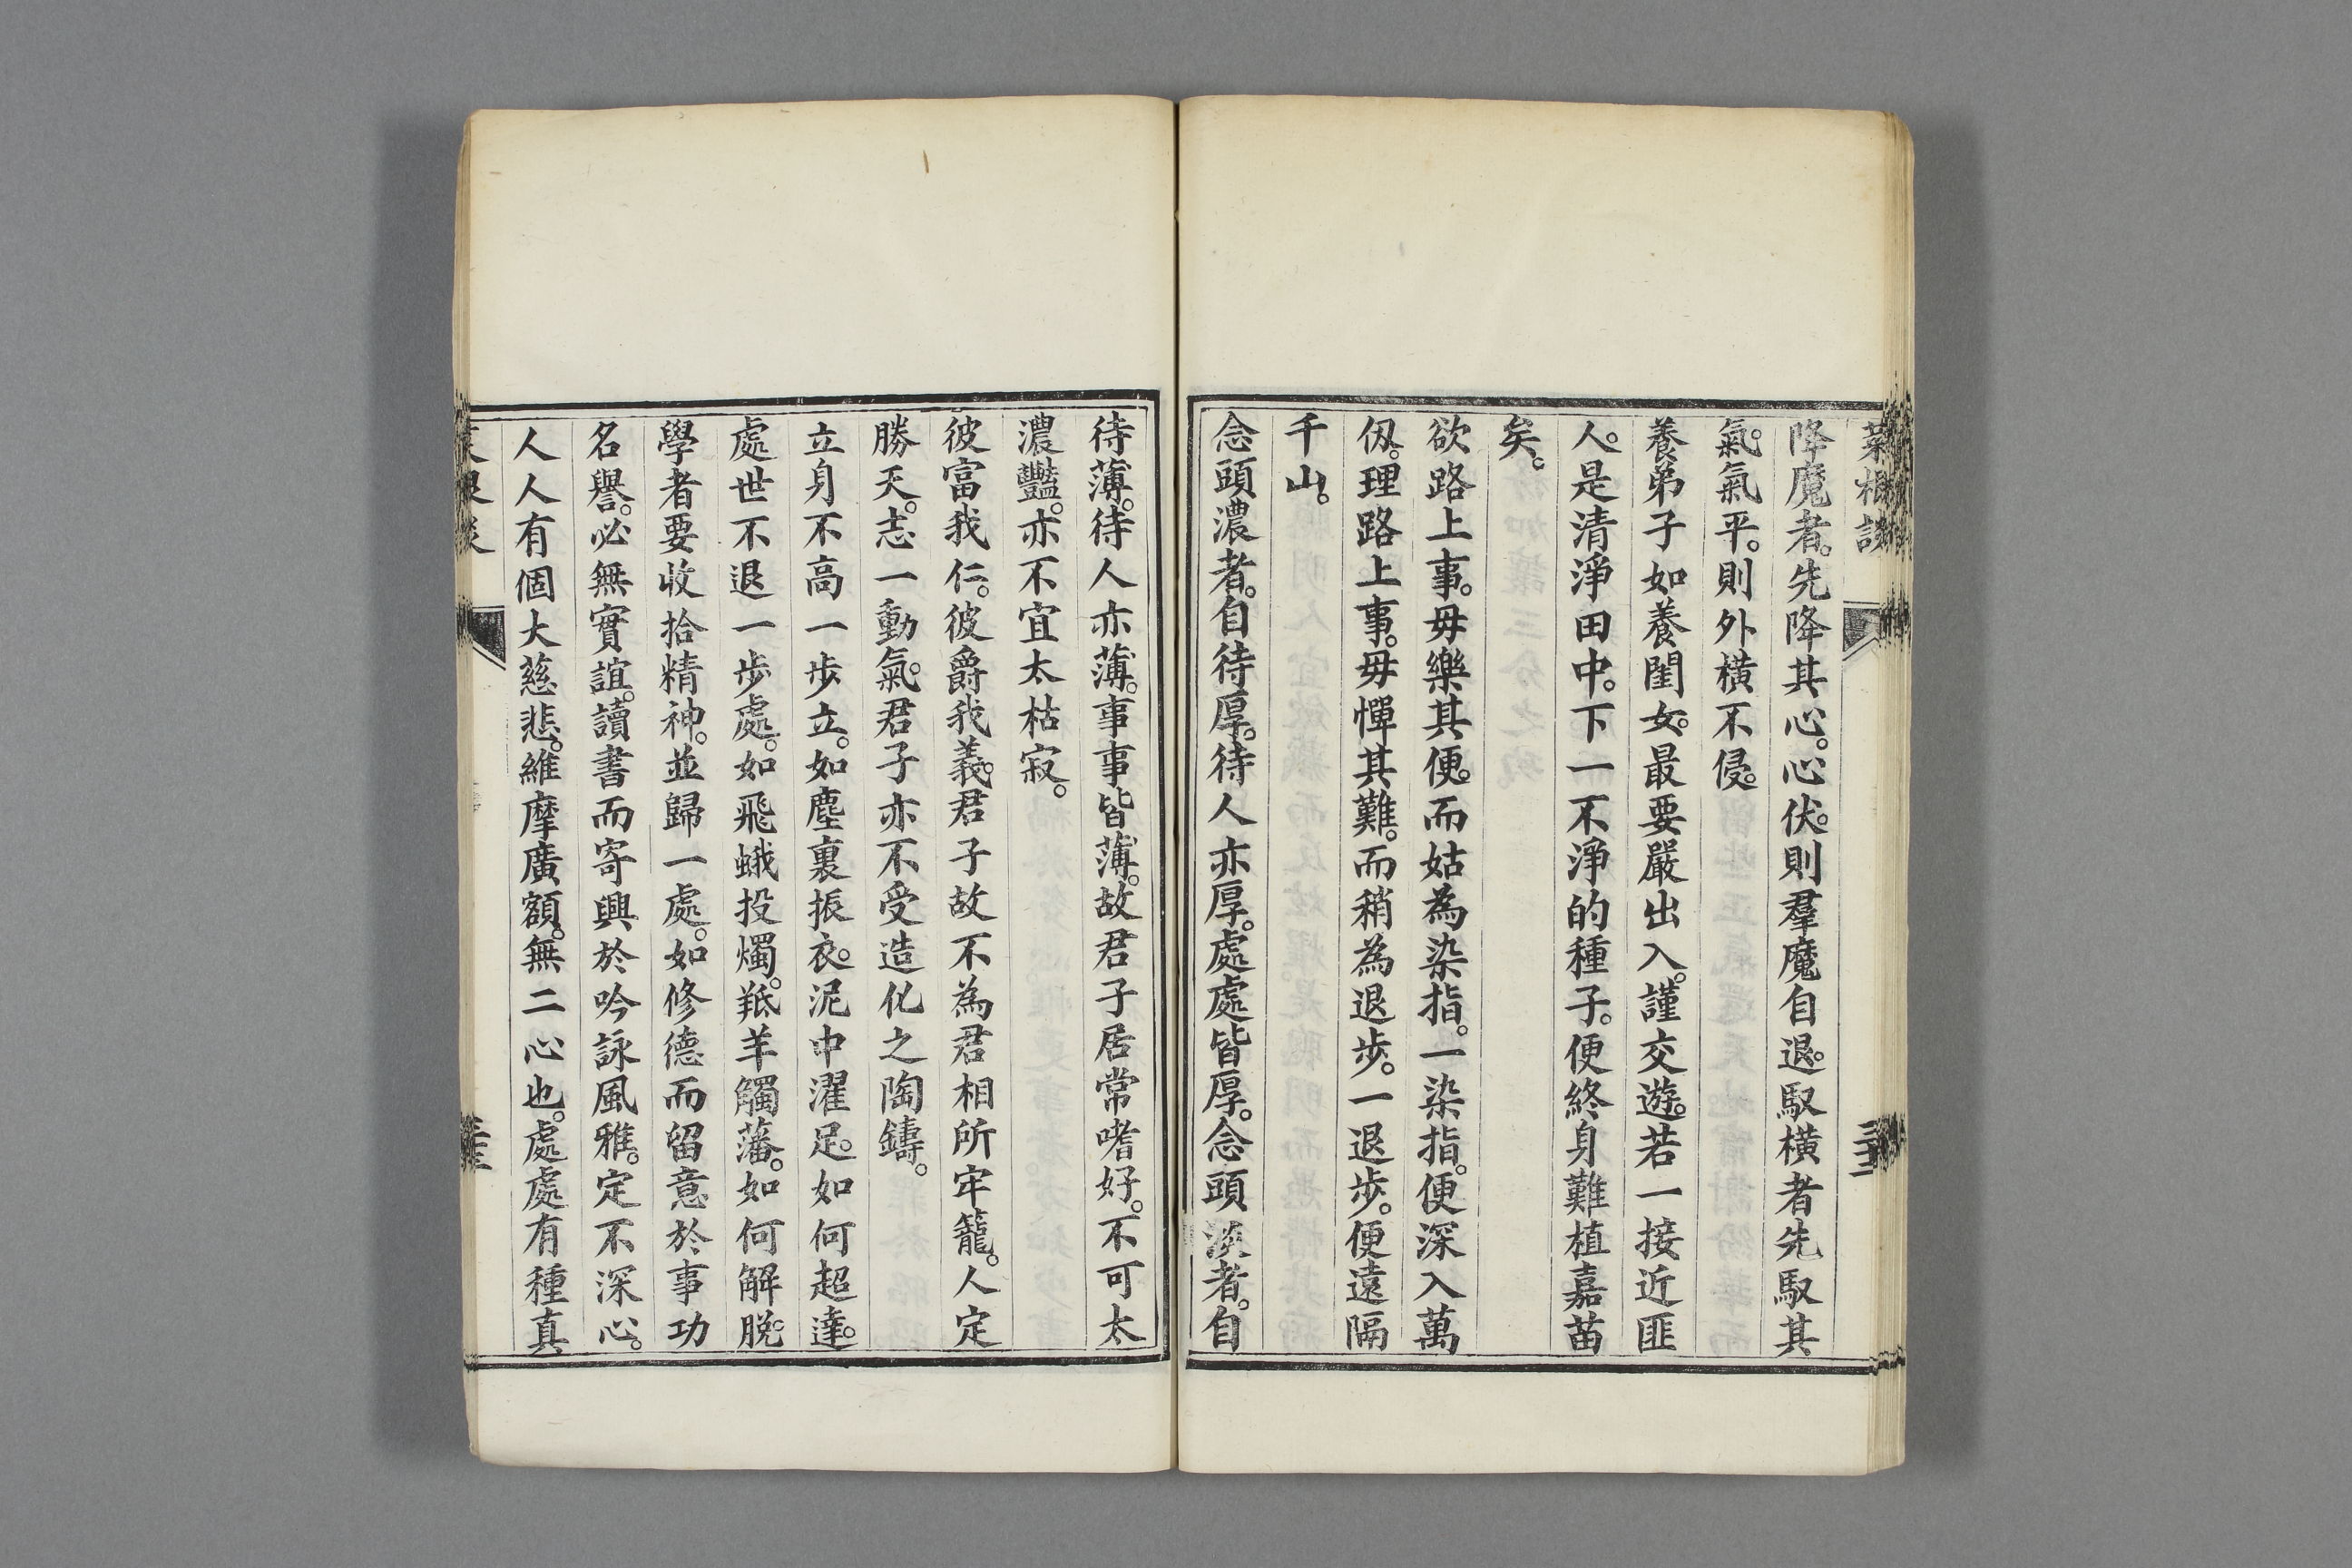 菜根談
降魔者。先降其心。心伏。則羣魔自退。馭横者先馭其
氣。氣平。則外横不侵。
養弟子如養閨女。最要嚴出入。謹交遊。若一接近匪
人。是清淨田中。下一不淨的種子。便終身難植嘉苗
矣。
欲路上事。毋樂其便。而姑為染指。一染指。便深入萬
仭。理路上事。毋憚其難。而稍為退步。一退步。便遠隔
千山。
念頭濃者。自待厚。待人亦厚。處處皆厚。念頭淡者。自
待薄。待人亦薄。事事皆薄。故君子居常嗜好。不可太
濃豔。亦不宜太枯寂。
彼富我仁。彼爵我義。君子故不為君相所牢籠。人定
勝天。志一動氣。君子亦不受造化之陶鑄。
立身不高一步立。如塵裏振衣。泥中濯足。如何超達。
處世不退一步處。如飛蛾投燭。羝羊觸藩。如何解脱。
學者要收拾精神。並歸一處。如修德而留意於事功
名譽。必無實誼。讀書而寄興於吟詠風雅。定不深心。
人人有個大慈悲。維摩廣額。無二心也。處處有種真